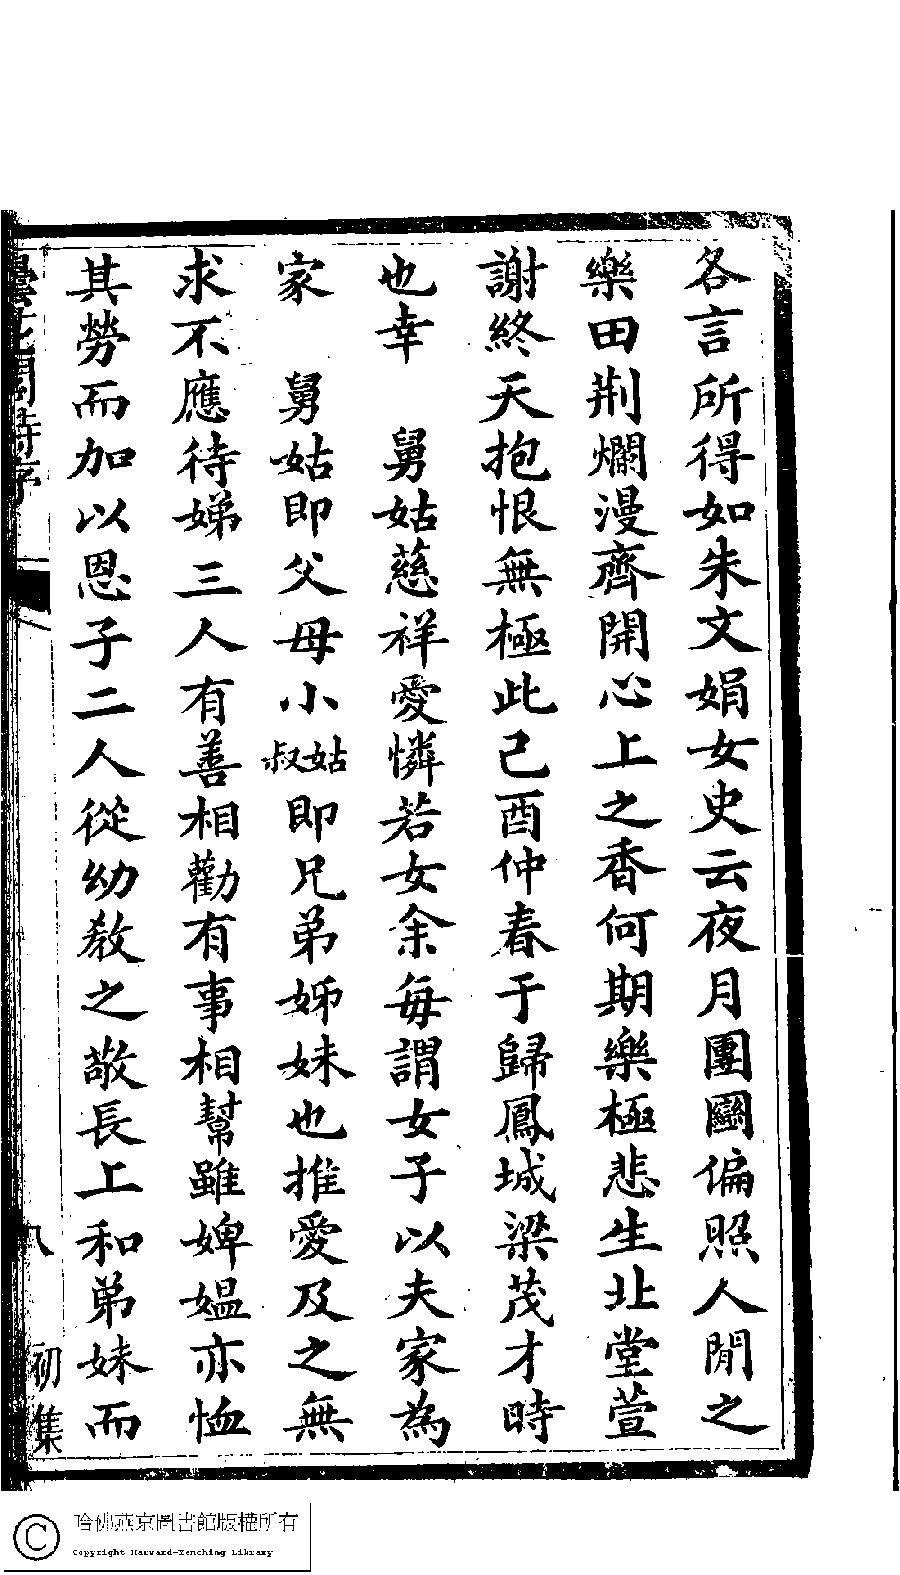 各言所得如朱文娟女史云夜月團圞偏照人閒之
樂田荆爛漫齊開心上之香何期樂極悲生北堂萱
謝終天抱恨無極此己酉仲春于歸鳳城梁茂才時
也幸　舅姑慈祥愛憐若女余每謂女子以夫家為
家　舅姑即父母小叔姑即兄弟姊妹也推愛及之無
求不應待娣三人有善相勸有事相幫雖婢媼亦恤
其勞而加以恩子二人從幼教之敬長上和弟妹而
曇花閣詩序
八
初集
哈佛燕京圖書館版權所有
Copyright Harvard-Yenching Library